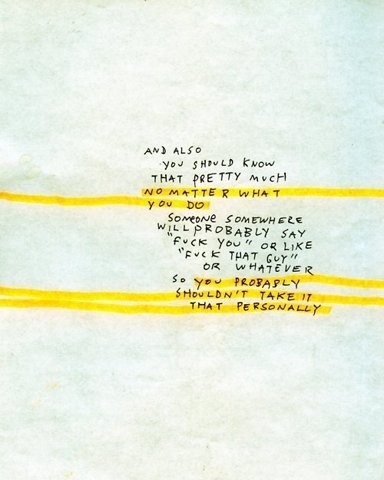 AND ALSO
YOU SHOULD KNOW
THAT PRETTY MUCH
NO MATTER WHAT
YOU DO
SOMEONE SOMEWHERE
WILL PROBABLY SAY
"FUCK YOU" OR LIKE
"FUCK THAT GUY"
OR WHATEVER
SO YOU PROBABLY
SHOULDN'T TAKE IT
THAT PERSONALLY